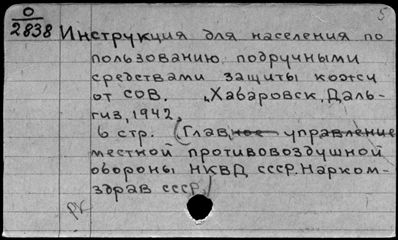 5
О
2838
Инструкция для населения по
пользованию подручными
средствами защиты кожи
от СОВ. Хабаровск, Даль-
гиз, 1942.
6 стр. (Главное управление
местной противовоздушной
обороны НКВД СССР. Нарком-
здрав СССР.)